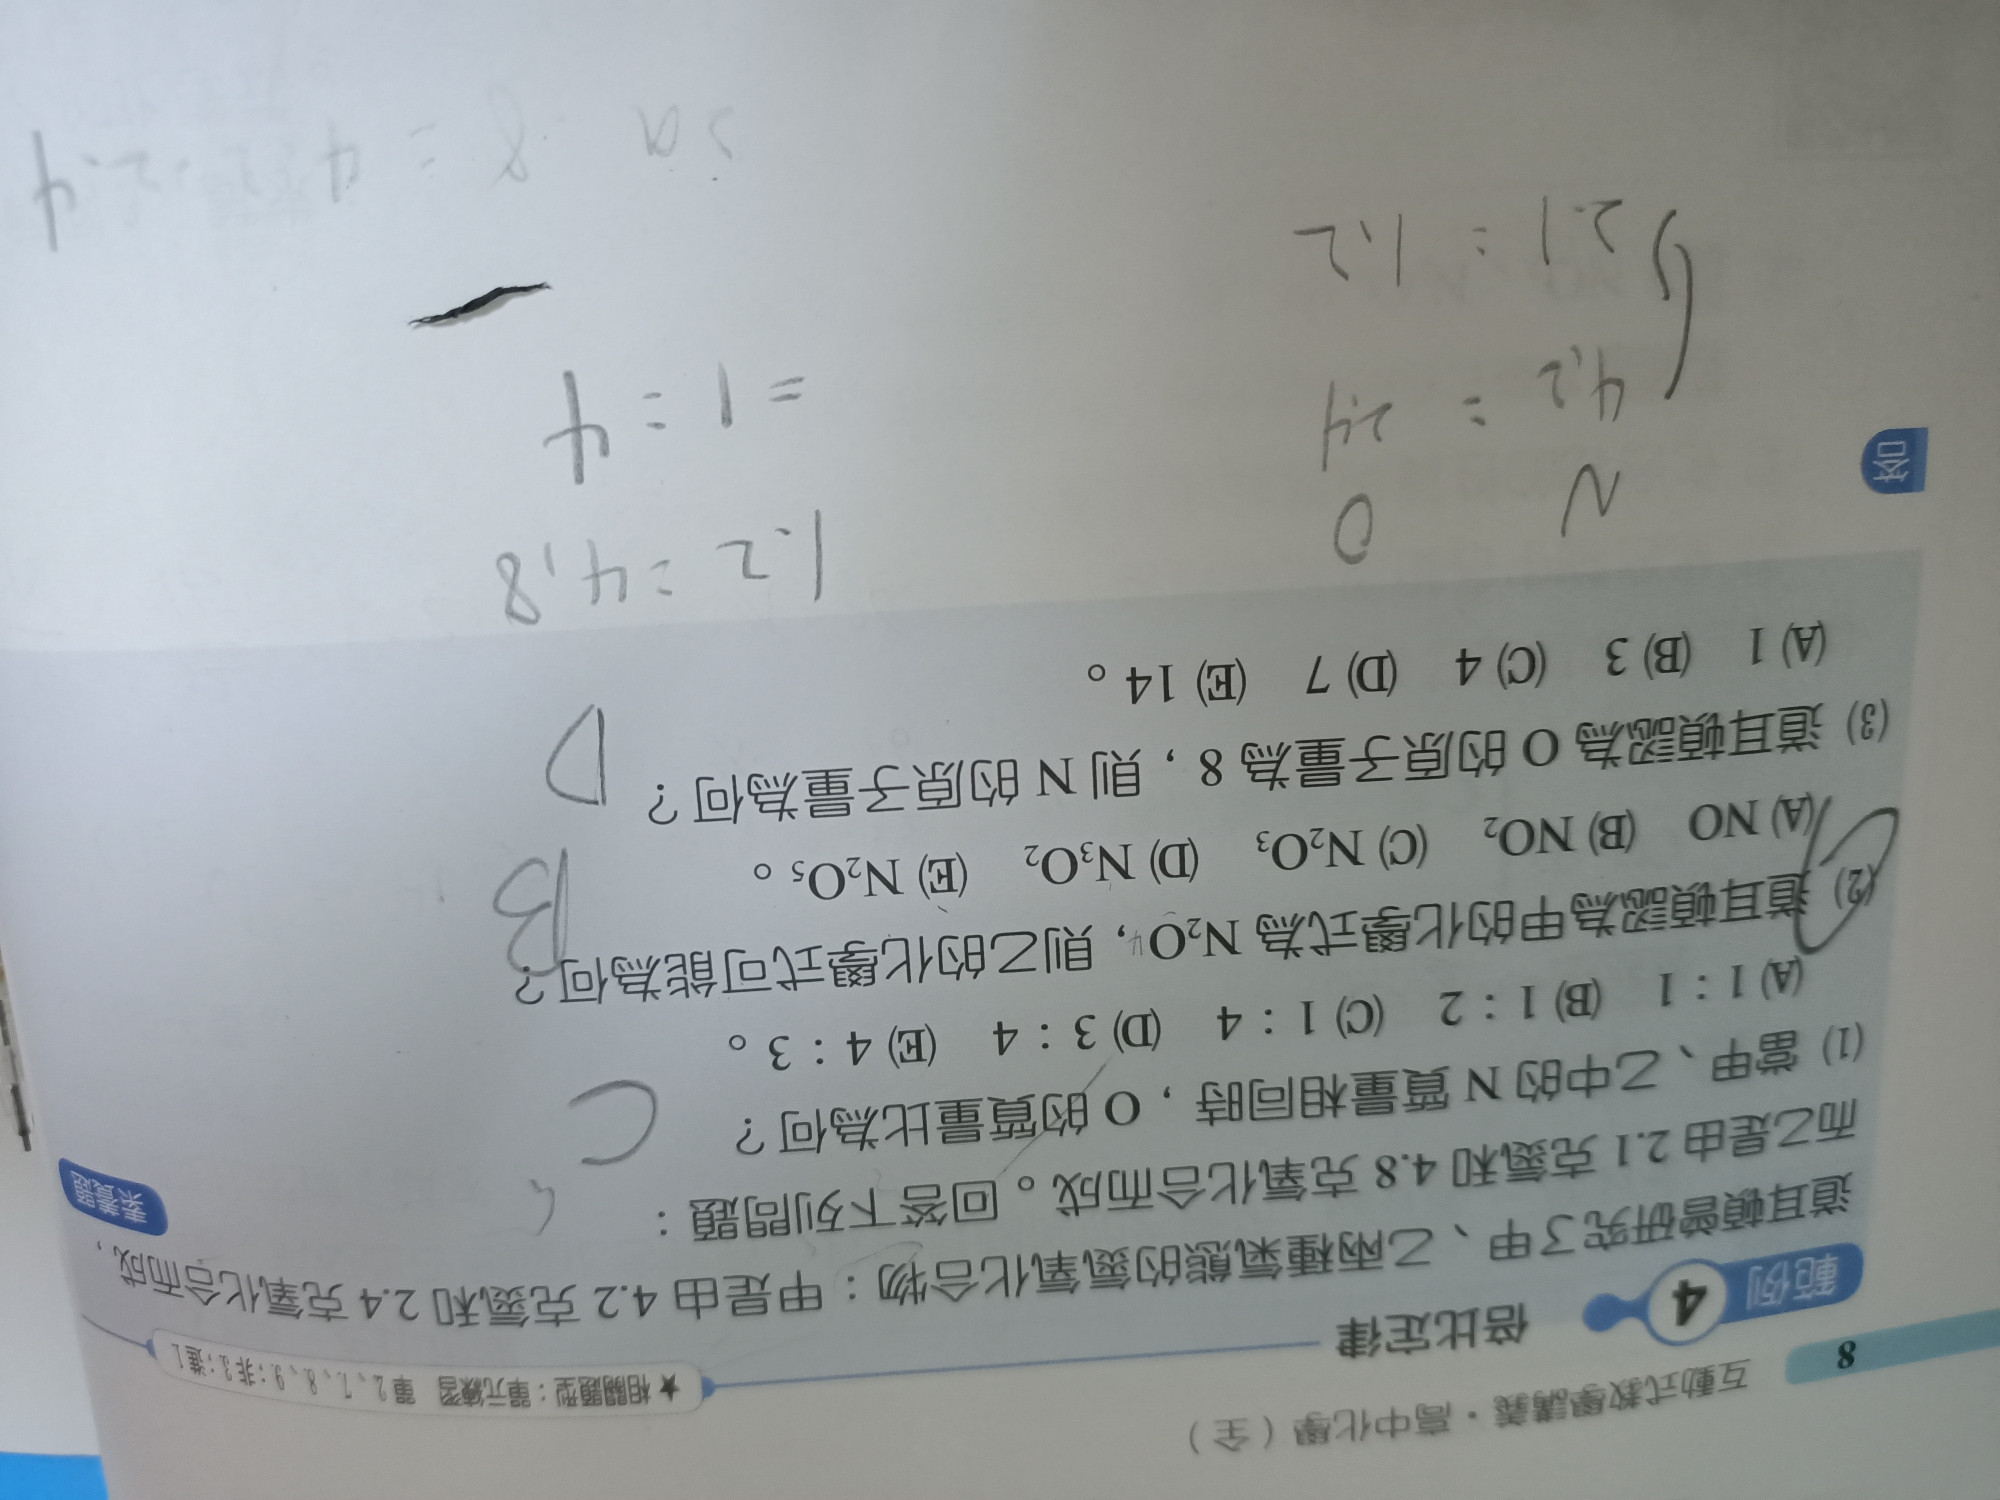 8
互動式教學講義・高中化學（全）
範例 4 倍比定律
★相關題型：單元練習 單2、7、8、9；非3；進1
道耳頓曾研究了甲、乙兩種氣態的氮氧化合物：甲是由 4.2 克氮和 2.4 克氧化合而成，
而乙是由 2.1 克氮和 4.8 克氧化合而成。回答下列問題：
素養題
(1) 當甲、乙中的 N 質量相同時，O 的質量比為何？ C
(A) 1：1 (B) 1：2 (C) 1：4 (D) 3：4 (E) 4：3。
(2) 道耳頓認為甲的化學式為 N₂O，則乙的化學式可能為何？ B
(A) NO (B) NO₂ (C) N₂O₃ (D) N₃O₂ (E) N₂O₅。
(3) 道耳頓認為 O 的原子量為 8，則 N 的原子量為何？ D
(A) 1 (B) 3 (C) 4 (D) 7 (E) 14。
N O
1.2 = 4.8
答
4.2 : 2.4
= 1 : 4
2.1 : 1.2